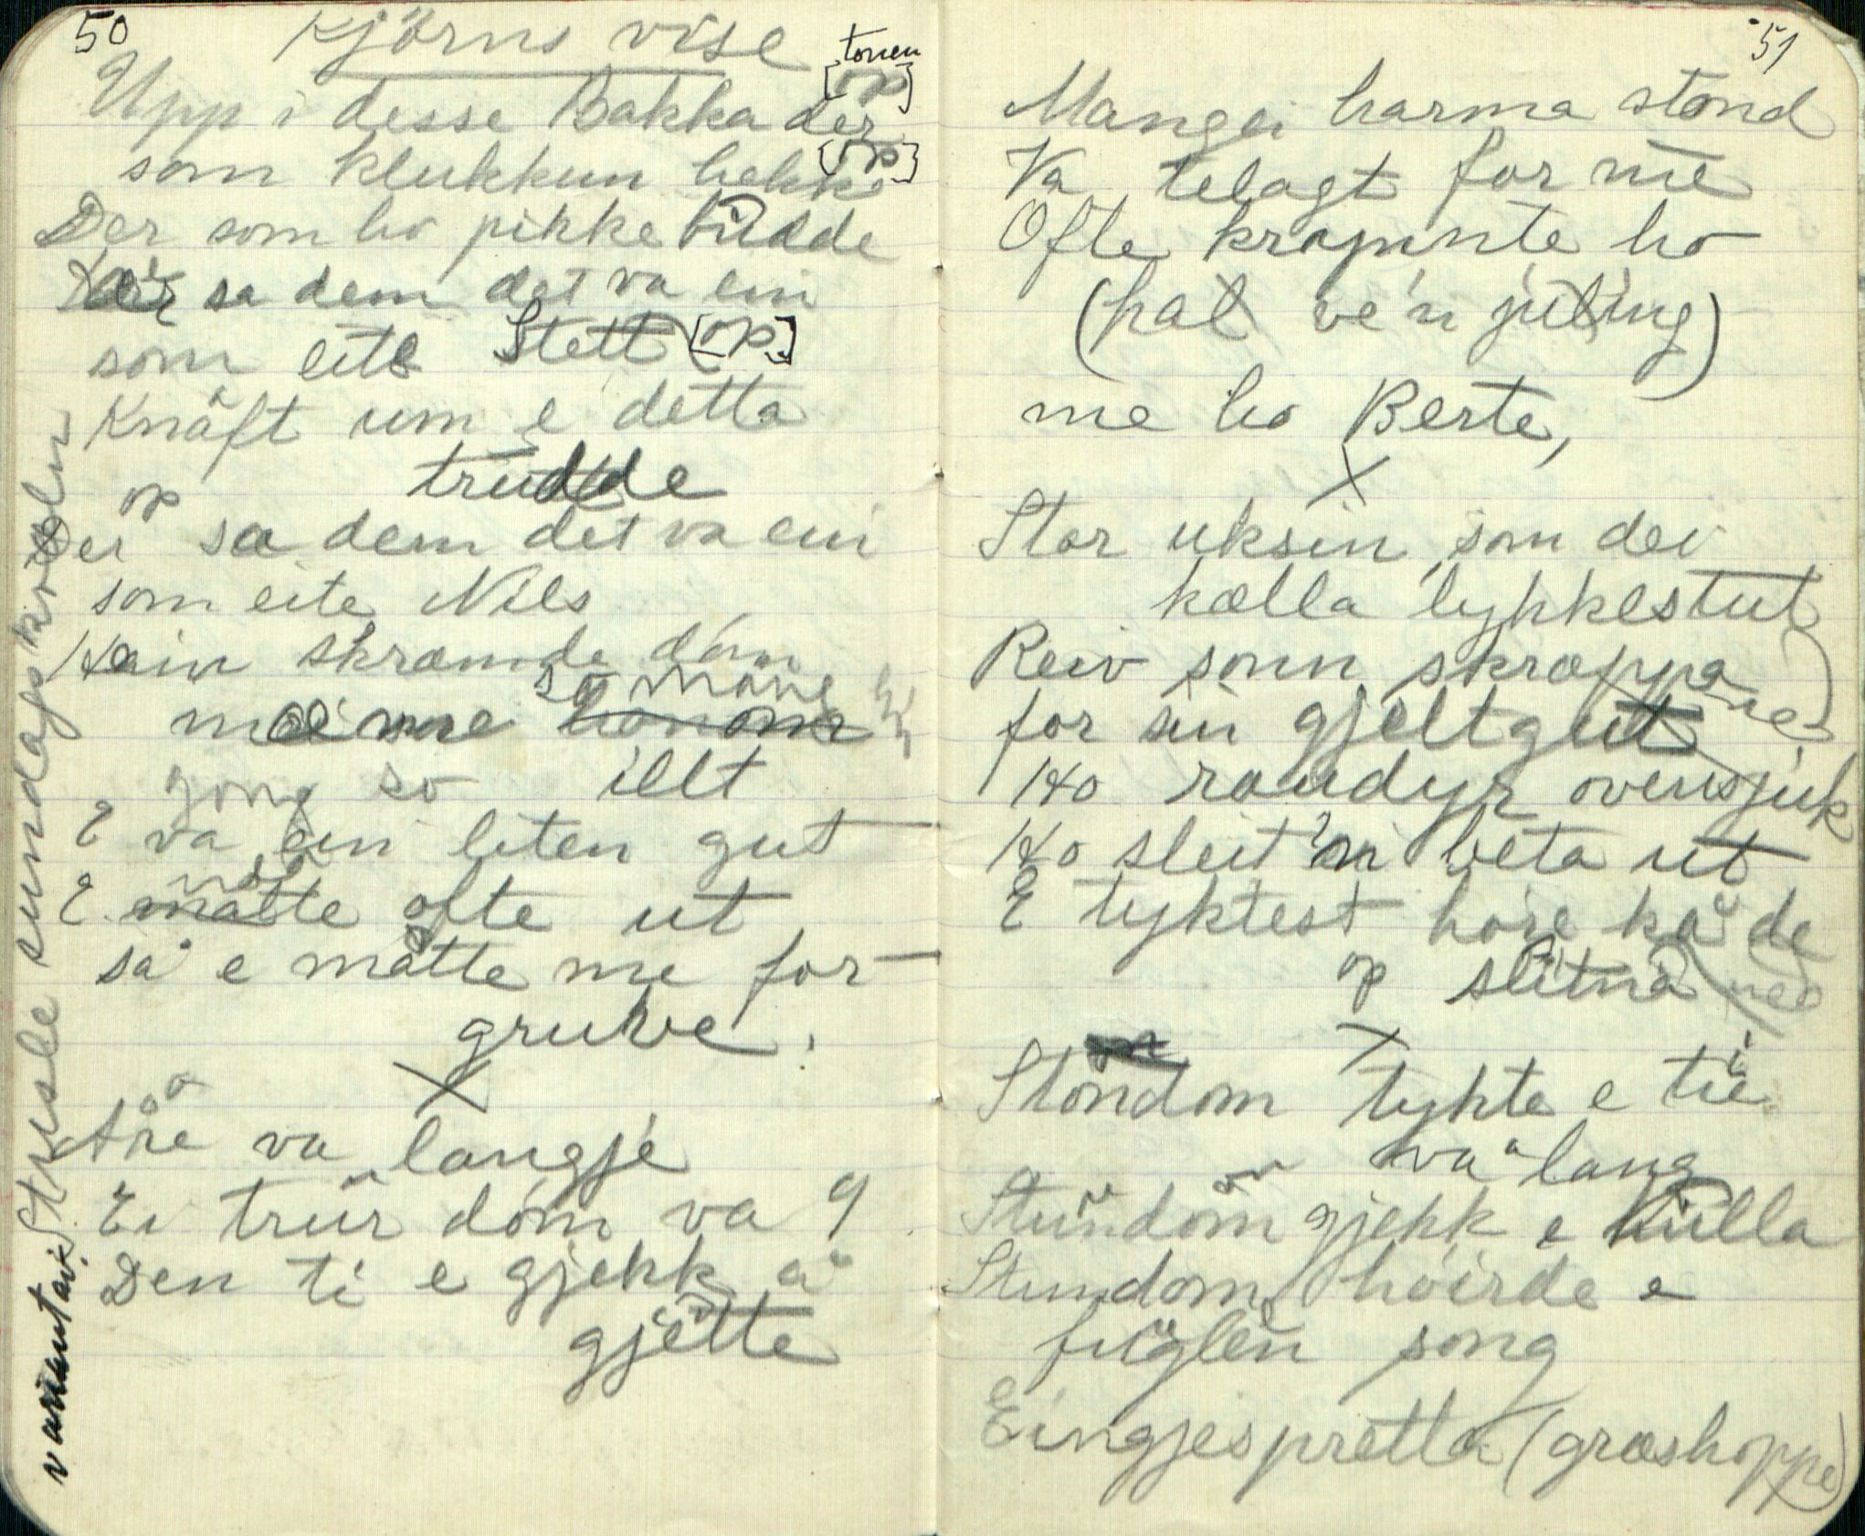 50
Kjörns vise
tonen
[op]
Upp i desse Bakka der
[op]
som klukkun hekke
Der som ho pikke budde
Der sa dem det va ein
som eite Stett [op]
Knäft um e detta
trudde
op
Dei sa dem det va ein
som eite Nils
Hain skræmde dóm
så mang
meinne honom
gong so illt
E va ein liten gut
E måtte ofte ut
så e måtte me for
gruve.
X
Åre va langje
Ei trur dóm va 9
Den ti e gjekk å
gjette
variant av: Strusle sundagskvelen
51
Mangei harma stond
Va telagt for me
Ofte krapinte ho
(hal ve'n juling)
me ho Berte,
X
Stor uksin som dei
kælla lykkestut
Reiv sonn skræppa
ne
for sin gjeltgut
Ho raudyr overisjuk
Ho sleit 'ni beta ut
E tyktest høre kå de
op slitna ned
X
Stondom tykte e tie
va lang
Stundom gjekk e kulla
Stundom hóirde e
fuglen song
Eingjespretta (græshoppe)